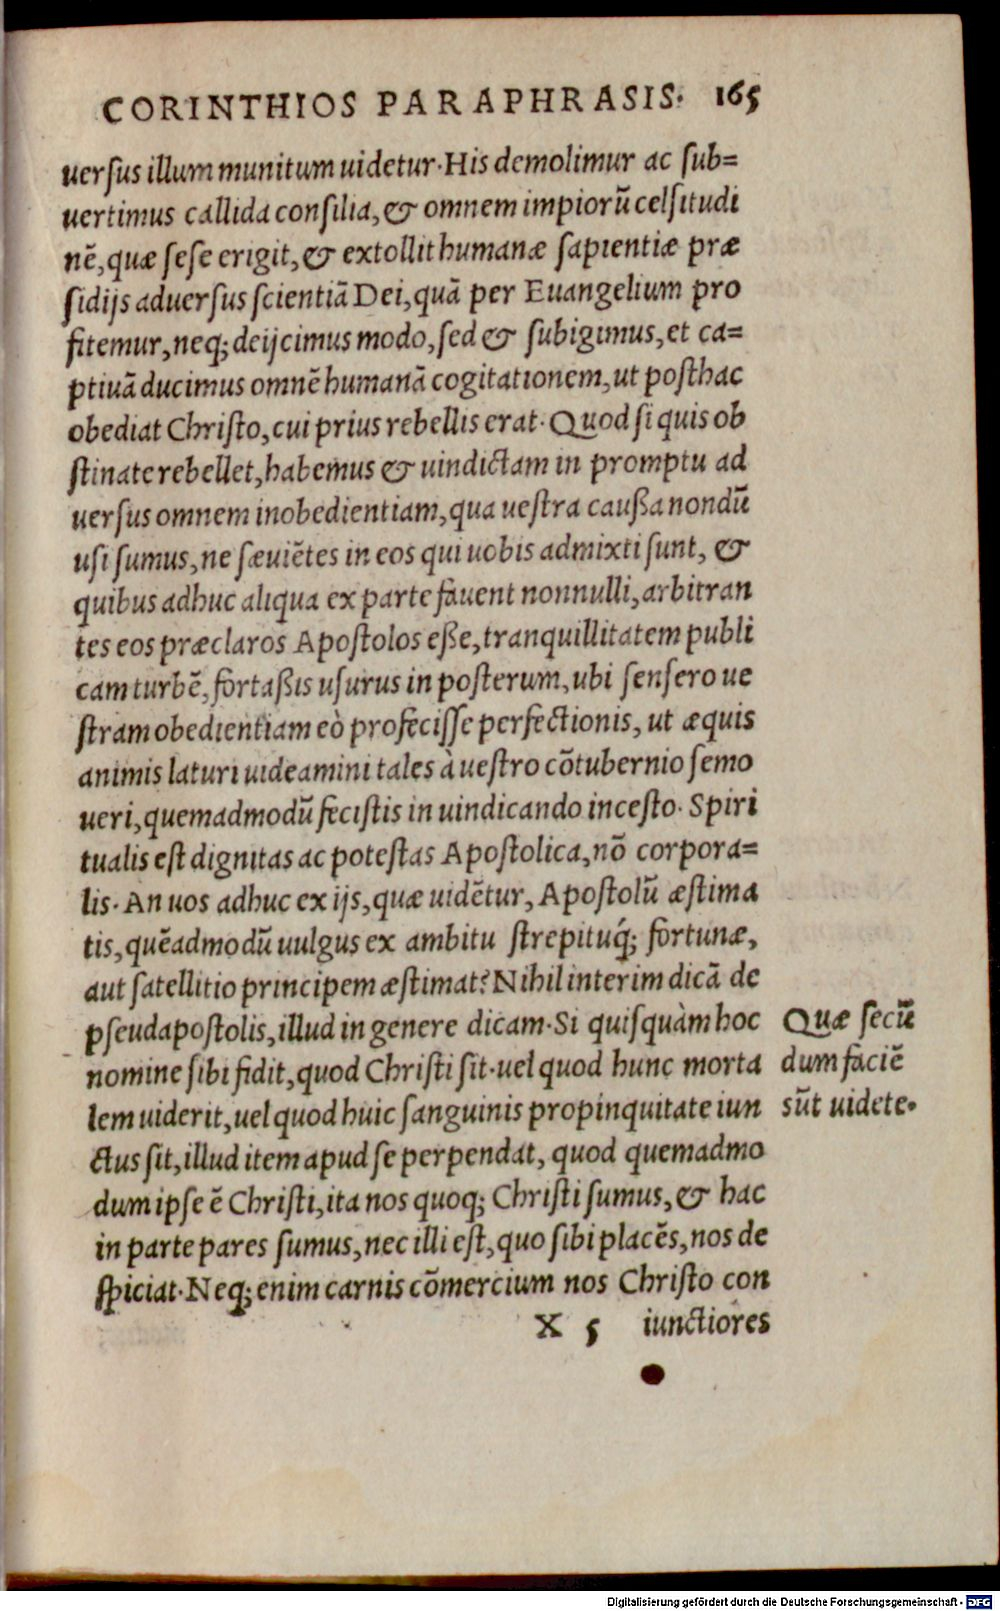 CORINTHIOS PARAPHRASIS. 165
uersus illum munitum uidetur. His demolimur ac sub=
uertimus callida consilia, & omnem impiorũ celsitudi
nẽ, quæ sese erigit, & extollit humanæ sapientiæ præ
sidijs aduersus scientiã Dei, quã per Euangelium pro
fitemur, neq; deijcimus modo, sed & subigimus, et ca=
ptiuã ducimus omnẽ humanã cogitationem, ut posthac
obediat Christo, cui prius rebellis erat. Quod si quis ob
stinate rebellet, habemus & uindictam in promptu ad
uersus omnem inobedientiam, qua uestra caußa nondũ
usi sumus, ne sæuiẽtes in eos qui uobis admixti sunt, &
quibus adhuc aliqua ex parte fauent nonnulli, arbitran
tes eos præclaros Apostolos eße, tranquillitatem publi
cam turbẽ, fortaßis usurus in posterum, ubi sensero ue
stram obedientiam eò profecisse perfectionis, ut æquis
animis laturi uideamini tales à uestro cõtubernio semo
ueri, quemadmodũ fecistis in uindicando incesto. Spiri
tualis est dignitas ac potestas Apostolica, nõ corpora=
lis. An uos adhuc ex ijs, quæ uidẽtur, Apostolũ æstima
tis, quẽadmodũ uulgus ex ambitu strepituq́; fortunæ,
aut satellitio principem æstimat? Nihil interim dicã de
pseudapostolis, illud in genere dicam. Si quisquàm hoc
nomine sibi fidit, quod Christi sit. uel quod hunc morta
lem uiderit, uel quod huic sanguinis propinquitate iun
ctus sit, illud item apud se perpendat, quod quemadmo
dum ipse ẽ Christi, ita nos quoq; Christi sumus, & hac
in parte pares sumus, nec illi est, quo sibi placẽs, nos de
spiciat. Neq; enim carnis cõmercium nos Christo con
X 5 iunctiores
Quæ secũ
dum faciẽ
sũt uidete.
Digitalisierung gefördert durch die Deutsche Forschungsgemeinschaft - DFG